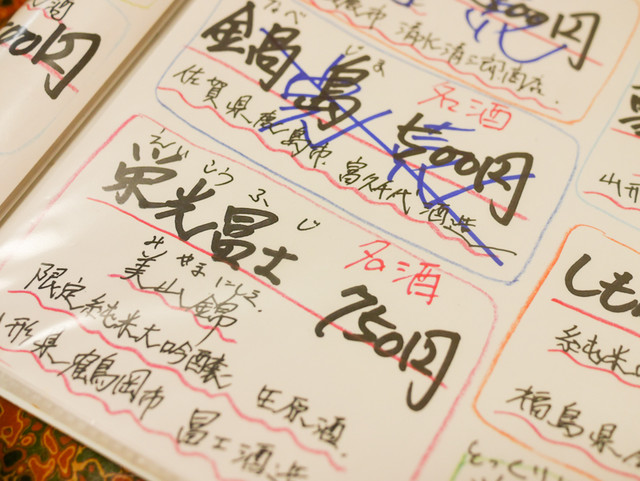 00円
00円
清水清三郎商店
なべ しま
金鍋島
名酒
500円
佐賀県鹿島市 富久千代 酒造
えいこうふじ
栄光冨士
名酒
みやまにしき
美山錦
750円
限定純米大吟醸 生原酒
山形県鶴岡市 冨士酒造
山形
しも
純米
福島県
とっくり